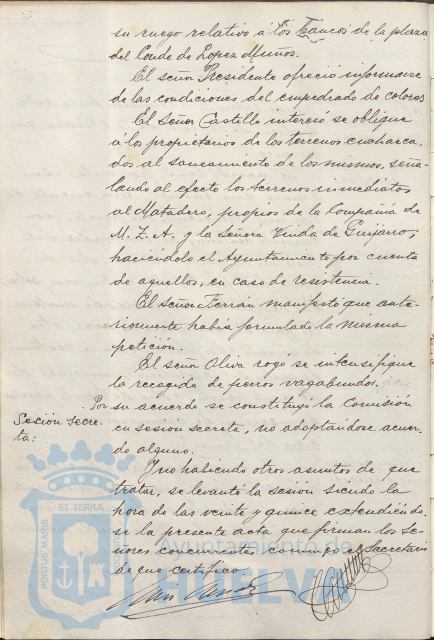 su ruego relativo á los bancos de la plaza
del Conde de Lopez Muñoz.
El señor Presidente ofreció informarse
de las condiciones del empedrado de colores
El Señor Castillo interesó se oblique
á los propietarios de los terrenos encharca-
dos al saneamiento de los mismos, seña-
lando al efecto los terrenos inmediatos
al Matadero, propios de la Compañía de
M. Z. A. y la Señora Viuda de Guijarro;
haciéndolo el Ayuntamiento por cuenta
de aquellos, en caso de resistencia.
El señor Terrán manifestó que ante-
riormente había formulado la misma
petición.
El señor Oliva rogó se intensifique
la recogida de perros vagabundos.
Por su acuerdo se constituyó la Comisión
Sesión secre-
ta:
en sesión secreta, no adoptándose acuer-
do alguno.
Y no habiendo otros asuntos de que
tratar, se levantó la sesión siendo la
hora de las veinte y quince extendiéndo-
se la presente acta que firman los Se-
ñores concurrentes, conmigo el Secretario
de que certifico.
PORTUS MARIS
ET TERRA
Ayuntamiento de
HUELVA